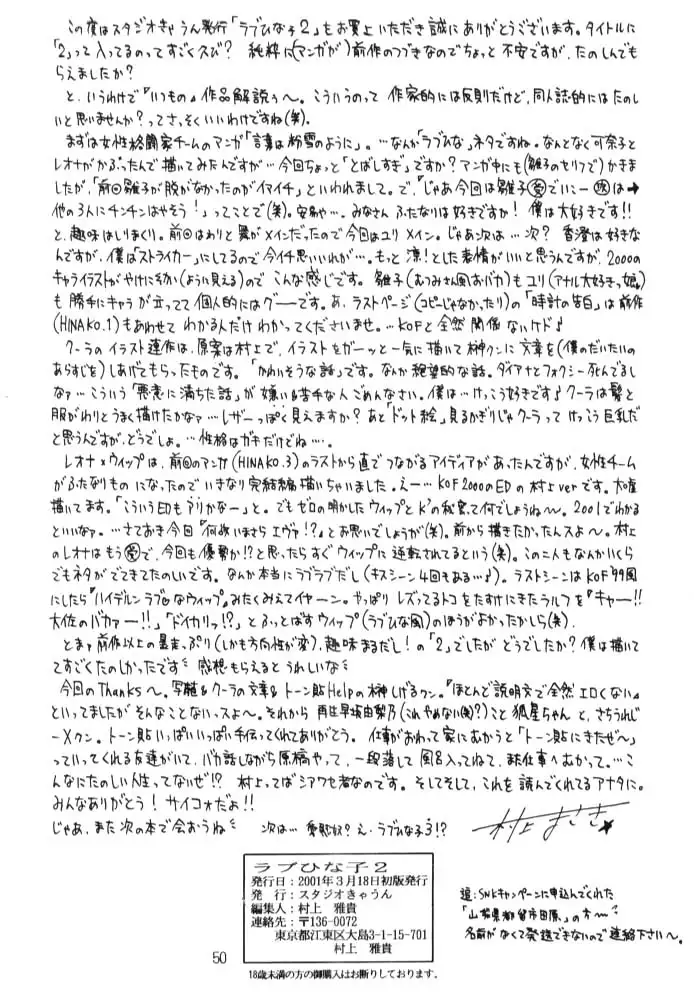 この度はスタジオきゃうん発行「ラブひな子2」をお買上いただき誠にありがとうございます。タイトルに
「2」って入ってるのってすごく久び? 純粋に(マンガが)前作のつづきなのでちょっと不安ですが、たのしんでも
らえましたか?
と、いうわけで『いつもの』作品解説ぅ〜。こういうのって作家的には反則だけど、同人誌的にはたのし
いと思いませんか?ってさ、そくいいわけですね(笑)。
まずは女性格闘家チームのマンガ「言葉は粉雪のように」。…なんか「ラブひな」ネタですね。なんとなく可奈子と
レオナがかぶったんで描いてみたんですが…今回ちょっと「とばしすぎ」ですか?マンガ中にも(雛子のセリフで)かきま
したが、「前回雛子が脱がなかったのがイマイチ」といわれまして。で、『じゃあ今回は雛子
他の3人にチンチンはやそう!』ってことで(笑)。安易や…。みなさんふたなりは好きですか!僕は大好きです!!
と、趣味はしりまくり。前回はわりと舞がメインだったので今回はユリメイン。じゃあ次は…次? 香澄は好きな
んですが、僕はストライカーにしてるので今イチ思いいれが…。もっと凛!とした表情がいいと思うんすが、2000の
キャライラストがやけにそふか(ように見える)ので こんな感じです。雛子(むつみさん風おバカ)もユリ(アナル大好きっ娘)
も勝手にキャラが立ってて個人的にはグーです。あ、ラストページ(コピーじゃなかったり)の「時計の告白」は前作
(HINAKO.1)もあわせてわかる人だけわかってくださいませ。…KOFと全然関係ないケド♪
クーラのイラスト連作は、原案は村上で、イラストをガーッと一気に描いて榊クンに文章を(僕のだいたいの
あらすじを)しあげてもらったものです。「かわいそうな話」です。なんか絶望的な話。ダイアナとフォクシー死んでるし
なァ…こういう「悪意に満ちた話」が嫌い&苦手な人ごめんなさい。僕は…けっこう好きです♪クーラは髪と
服がわりとうまく描けたかなァ…レザーっぽく見えますか?
レオナ×ウィップは、前回のマンガ(HINAKO.3)のラストから直でつながるアイディアがあったんですが、女性チーム
がふたなりものになったのでいきなり完結編描いちゃいました。えー…KOF2000のEDの村上verです。大嘘
描いてます。「こういうEDもアリかなー」と。でもゼロの明かしたウィップとK'の秘密って何でしょうね〜。2001でわかる
といいなァ。…さておき今回『何故いまさらエヴァ!?』とお思いでしょうが(笑)。前から描きたかったんスよ〜。村上
のレオナはもうで、今回も優勢か!?と思ったらすぐウィップに逆転されてるという(笑)。この二人もなんかいくら
でもネタがでてきてたのしいです。なんか本当にラブラブだし(キスシーン4回もある…♪)。ラストシーンはKOF99風
にしたら『ハイデルンラブなウィップ』みたくみえてイヤーン。やっぱりレズってるトコをたすけにきたラルフを『キャー!!
大佐のバカァー!!』「ドイカリッ!?」とふっとばすウィップ(ラブひな風)のほうがよかったかしら(笑)。
とまァ前作以上の暴走っぷり(しかも方向性が変)、趣味まるだし!の「2」でしたがどうでしたか?僕は描いて
てすごくたのしかったです 感想もらえるとうれしいな
今回のThanks〜。写植&クーラの文章&トーン貼Helpの榊しげるクン。『ほとんど説明文で全然エロくない』
といってましたがそんなことないっスよ〜。それから 再生早坂由梨乃(これやめない(笑)?)こと狐屋ちゃんと、さちうれじ
ーXクン。トーン貼いっぱいいっぱい手伝ってくれてありがとう。仕事がおわって家にむかうと「トーン貼にきたぜ〜」
っていってくれる友達がいて、バカ話しながら原稿やって、一段落して風呂入ってねて、また仕事へむかって。…こ
んなにたのしい人生ってないぜ!? 村上ってばシアワセ者なのです。そしてそして、これを読んでくれてるアナタに。
みんなありがとう!サイコォだよ!!
じゃあ、また次の本で会おうね 次は… え、ラブひな子3!?
村上まさき
ラブひな子2
発行日:2001年3月18日初版発行
発 行:スタジオきゃうん
編集人:村上 雅貴
連絡先:〒136-0072
東京都江東区大島3-1-15-701
村上 雅貴
18歳未満の方の御購入はお断りしております。
追:SNKキャンペーンに申込んでくれた
「山梨県都留市田原」の方〜
名前がなくて発送できないので連絡下さい〜。
50